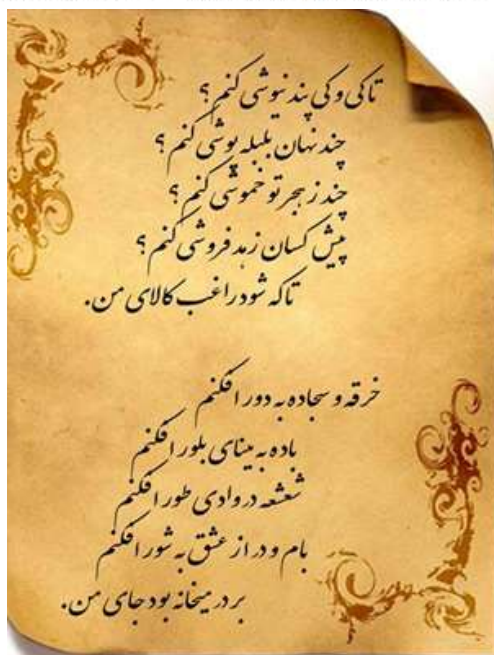 تاکی و کی پند نیوشی کنم؟
چند نهان بلبله پوشی کنم؟
چند ز هجر تو خموشی کنم؟
پیش کسان زهد فروشی کنم؟
تاکه شود راغب کالای من.
خرقه و سجاده به دور افکنم
باده به مینای بلور افکنم
شعشعه در وادی طور افکنم
بام و در از عشق به شور افکنم
بر در میخانه بود جای من.